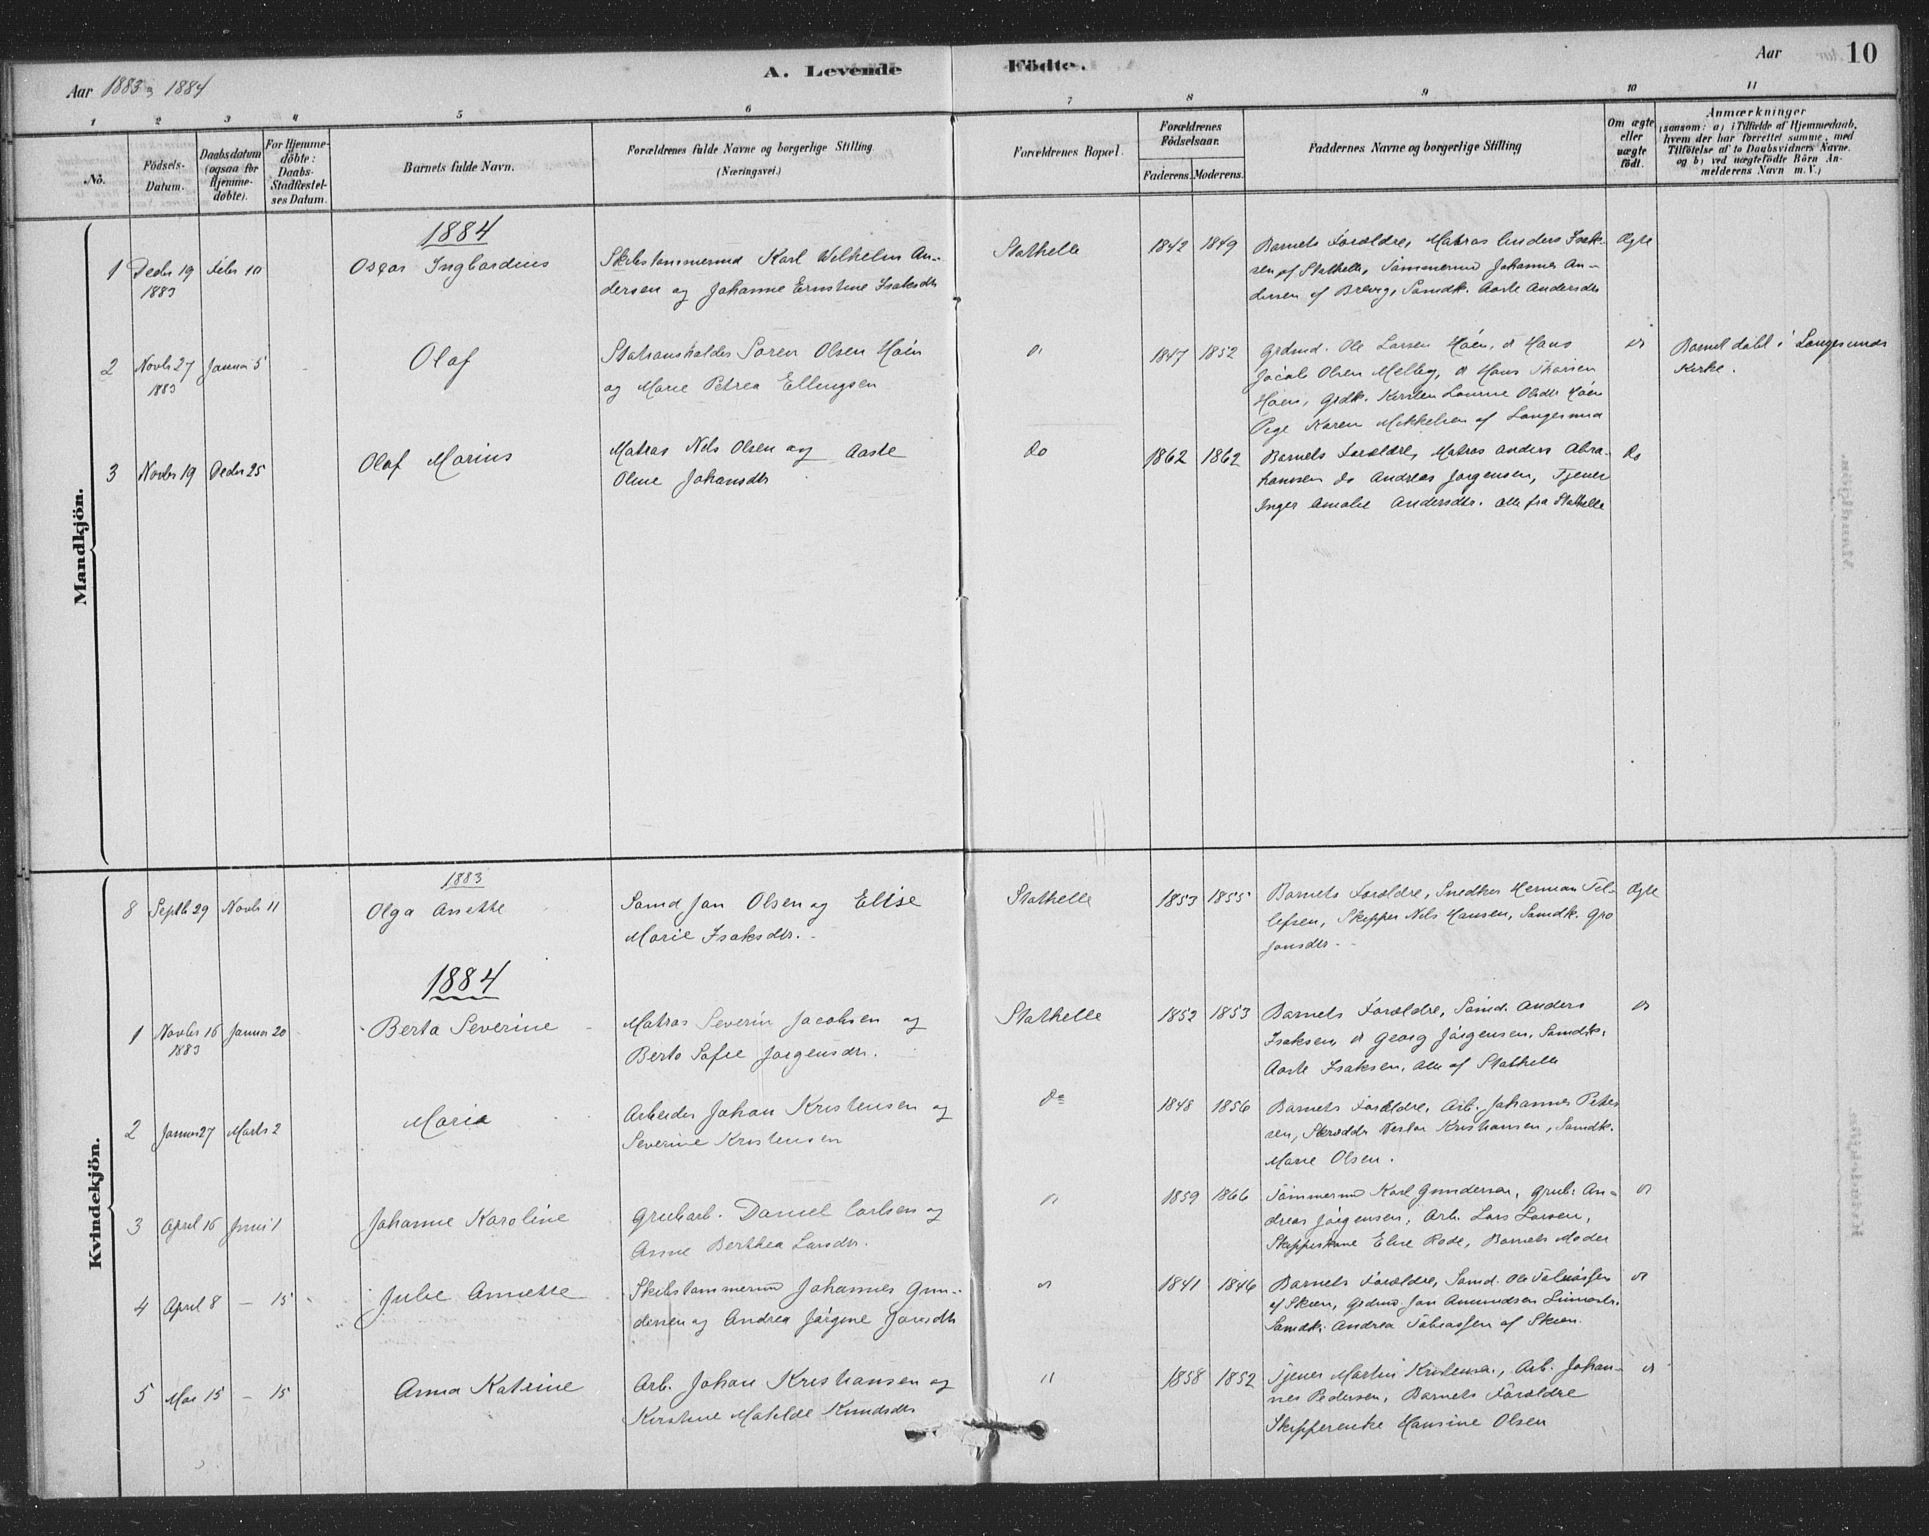 Aar 1883 & 1884
A. Levende Födte.
Aar
10
1 2 3 4 5 6 7 8 9 10 11
No.
Födsels-Datum.
Daabsdatum (ogsaa for Hjemme-döbte).
For Hjemme-döbte: Daabs-Stadfæstel-ses Datum.
Barnets fulde Navn.
Forældrenes fulde Navne og borgerlige Stilling
(Næringsvei.)
Forældrenes Bopæl.
Forældrenes Födselsaar.
Faderens. Moderens.
Faddernes Navne og borgerlige Stilling
Om ægte eller uægte födt.
Anmærkninger
(saasom: a) i Tilfælde af Hjemmedaab,
hvem der har forrettet samme, med
Tilföielse af to Daabsvidners Navne.
og b) ved uægtefödte Börn An-
melderens Navn m.V.)
Mandkjön.
1884
1 Decbr 19 1883 Febr 10
Oscar Ingvardius
Skibstømmermd Karl Wilhelm An-
dersen og Johanne Ernstine Isaksdr
Stathelle
1842 1849
Barnets Forældre, Matros Anders Isak-
sen af Stathelle, Tømmermd Johannes An-
dersen af Brevig, Samdk. Aaste Andersdr
Ægte
2 Novbr 27 1883 Januar 5
Olaf
Stationsholder Søren Olsen Høen
og Marie Petrea Ellingsen
"
1847 1852
Grdmd. Ole Larsen Høen, " Hans
Jacob Olsen Melby, " Hans
Høen, Grdk. Kirsten Laurine Olsdr Høen
Pige Karen Mikkelsen af Langesund
"
Barnet døbt i Langesunds
Kirke.
3 Novbr 19 Decbr 25
Olaf Marius
Matros Nils Olsen og Aaste
Oline Johansdr
Do
1862 1862
Barnets Forældre, Matros Anders Abra-
hamsen do Andreas Jørgensen, Tjener
Inger Amalie Andersdr. alle fra Stathelle
Do
Kvindekjön.
1883
8 Septb 29 Novbr 11
Olga Anette
Sømd Jan Olsen og Elise
Marie Isaksdr.
Stathelle
1853 1855
Barnets Forældre, Snedker Herman Tel-
lefsen, Skipper Nils Hansen, Samdk. Gro
Jansdr.
Ægte
1884
1 Novbr 16 1883 Januar 20
Berta Severine
Matros Severin Jacobsen og
Berte Sofie Jørgensdr.
Stathelle
1852 1853
Barnets Forældre, Sømd. Anders
Isaksen, " Georg Jørgensen, Sømdk.
Aaste Isaksen, alle af Stathelle
"
2 Januar 27 Marts 2
Maria
Arbeider Johan Kristensen og
Severine Kristensen
Do
1848 1856
Barnets Forældre, Arb. Johannes Peter-
sen, Skrædder Kristiansen, Sømdk.
Marie Olsen.
3 April 16 Juni 1
Johanne Karoline
Grubarb. Daniel Carlsen og
Anne Berthea Larsdr.
"
1859 1866
Tømmermd Karl Gundersen, Grub. An-
dreas Jørgensen, Arb. Lars Larsen,
Skipperskone Elise Rode, Barnets Moder
"
4 April 8 — 15
Julie Annette
Skibstømmermd Johannes Gun-
dersen og Andrea Jørgine Jansdr
"
1841 1846
Barnets Forældre, Sømd. Ole Tobiassen
af Skien, Grdmd. Jan Amundsen
Sømdk. Andrea Tobiassen af Skien.
"
5 Mai 15 — 15
Anna Katrine
Arb. Johan Kristiansen og
Kirstine Matilde Knudsdr
"
1858 1852
Tjener Martin Kristensen, Arb. Johan-
nes Pedersen, Barnets Forældre
Skipperenke Hansine Olsen
"